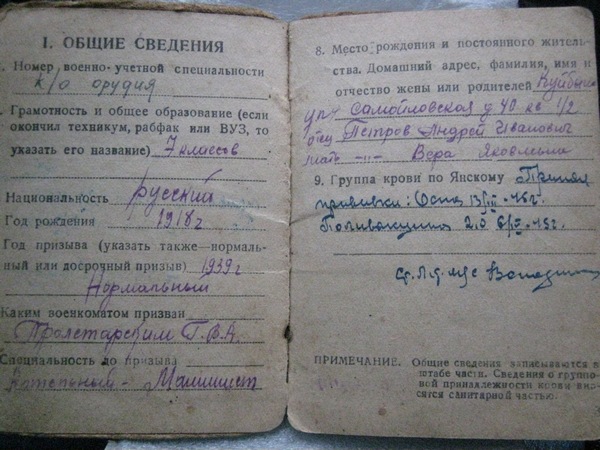 I. ОБЩИЕ СВЕДЕНИЯ
. Номер военно-учетной специальности
к/о орудия
. Грамотность и общее образование (если
окончил техникум, рабфак или ВУЗ, то
указать его название) 7 классов
Национальность русский
Год рождения 1918 г
Год призыва (указать также—нормаль-
ный или досрочный призыв) 1939 г
Нормальный
Каким военкоматом призван
Пролетарским Г.В.К.
Специальность до призыва
Котельный - Машинист
8. Место рождения и постоянного житель-
ства. Домашний адрес, фамилия, имя и
отчество жены или родителей
ул. Самойловская д 40 кв 1/2
отец Петров Андрей Иванович
мать -"- Вера Яковлевна
9. Группа крови по Янскому
прививки: Оспа
Поливакцина 2.0
ПРИМЕЧАНИЕ. Общие сведения записываются в
штабе части. Сведения о группо-
вой принадлежности крови вно-
сятся санитарной частью.